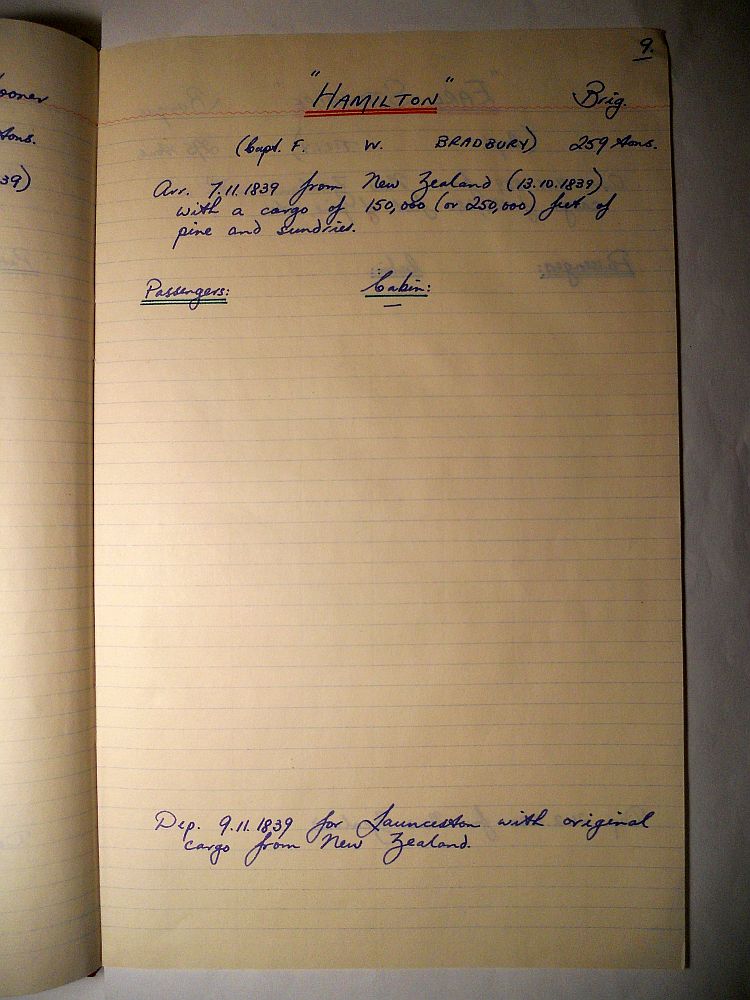 9.
"HAMILTON" Brig.
(Capt. F. W. BRADBURY) 259 tons.
Arr. 7.11.1839 from New Zealand (13.10.1839)
with a cargo of 150,000 (or 250,000) feet of
pine and sundries.
Passengers: Cabin:
—
Dep. 9.11.1839 for Launceston with original
cargo from New Zealand.
ooner
tons.
39)